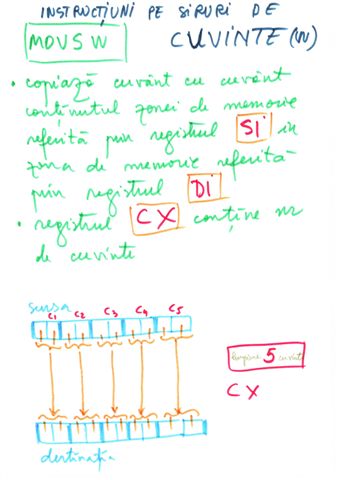 INSTRUCȚIUNI PE ȘIRURI DE
MOVSW CUVINTE (W)
• copiază cuvânt cu cuvânt
conținutul zonei de memorie
referită prin registrul SI în
zona de memorie referită
prin registrul DI
• registrul CX conține nr
de cuvinte
sursa
C1 C2 C3 C4 C5
5 cuvinte
CX
destinația